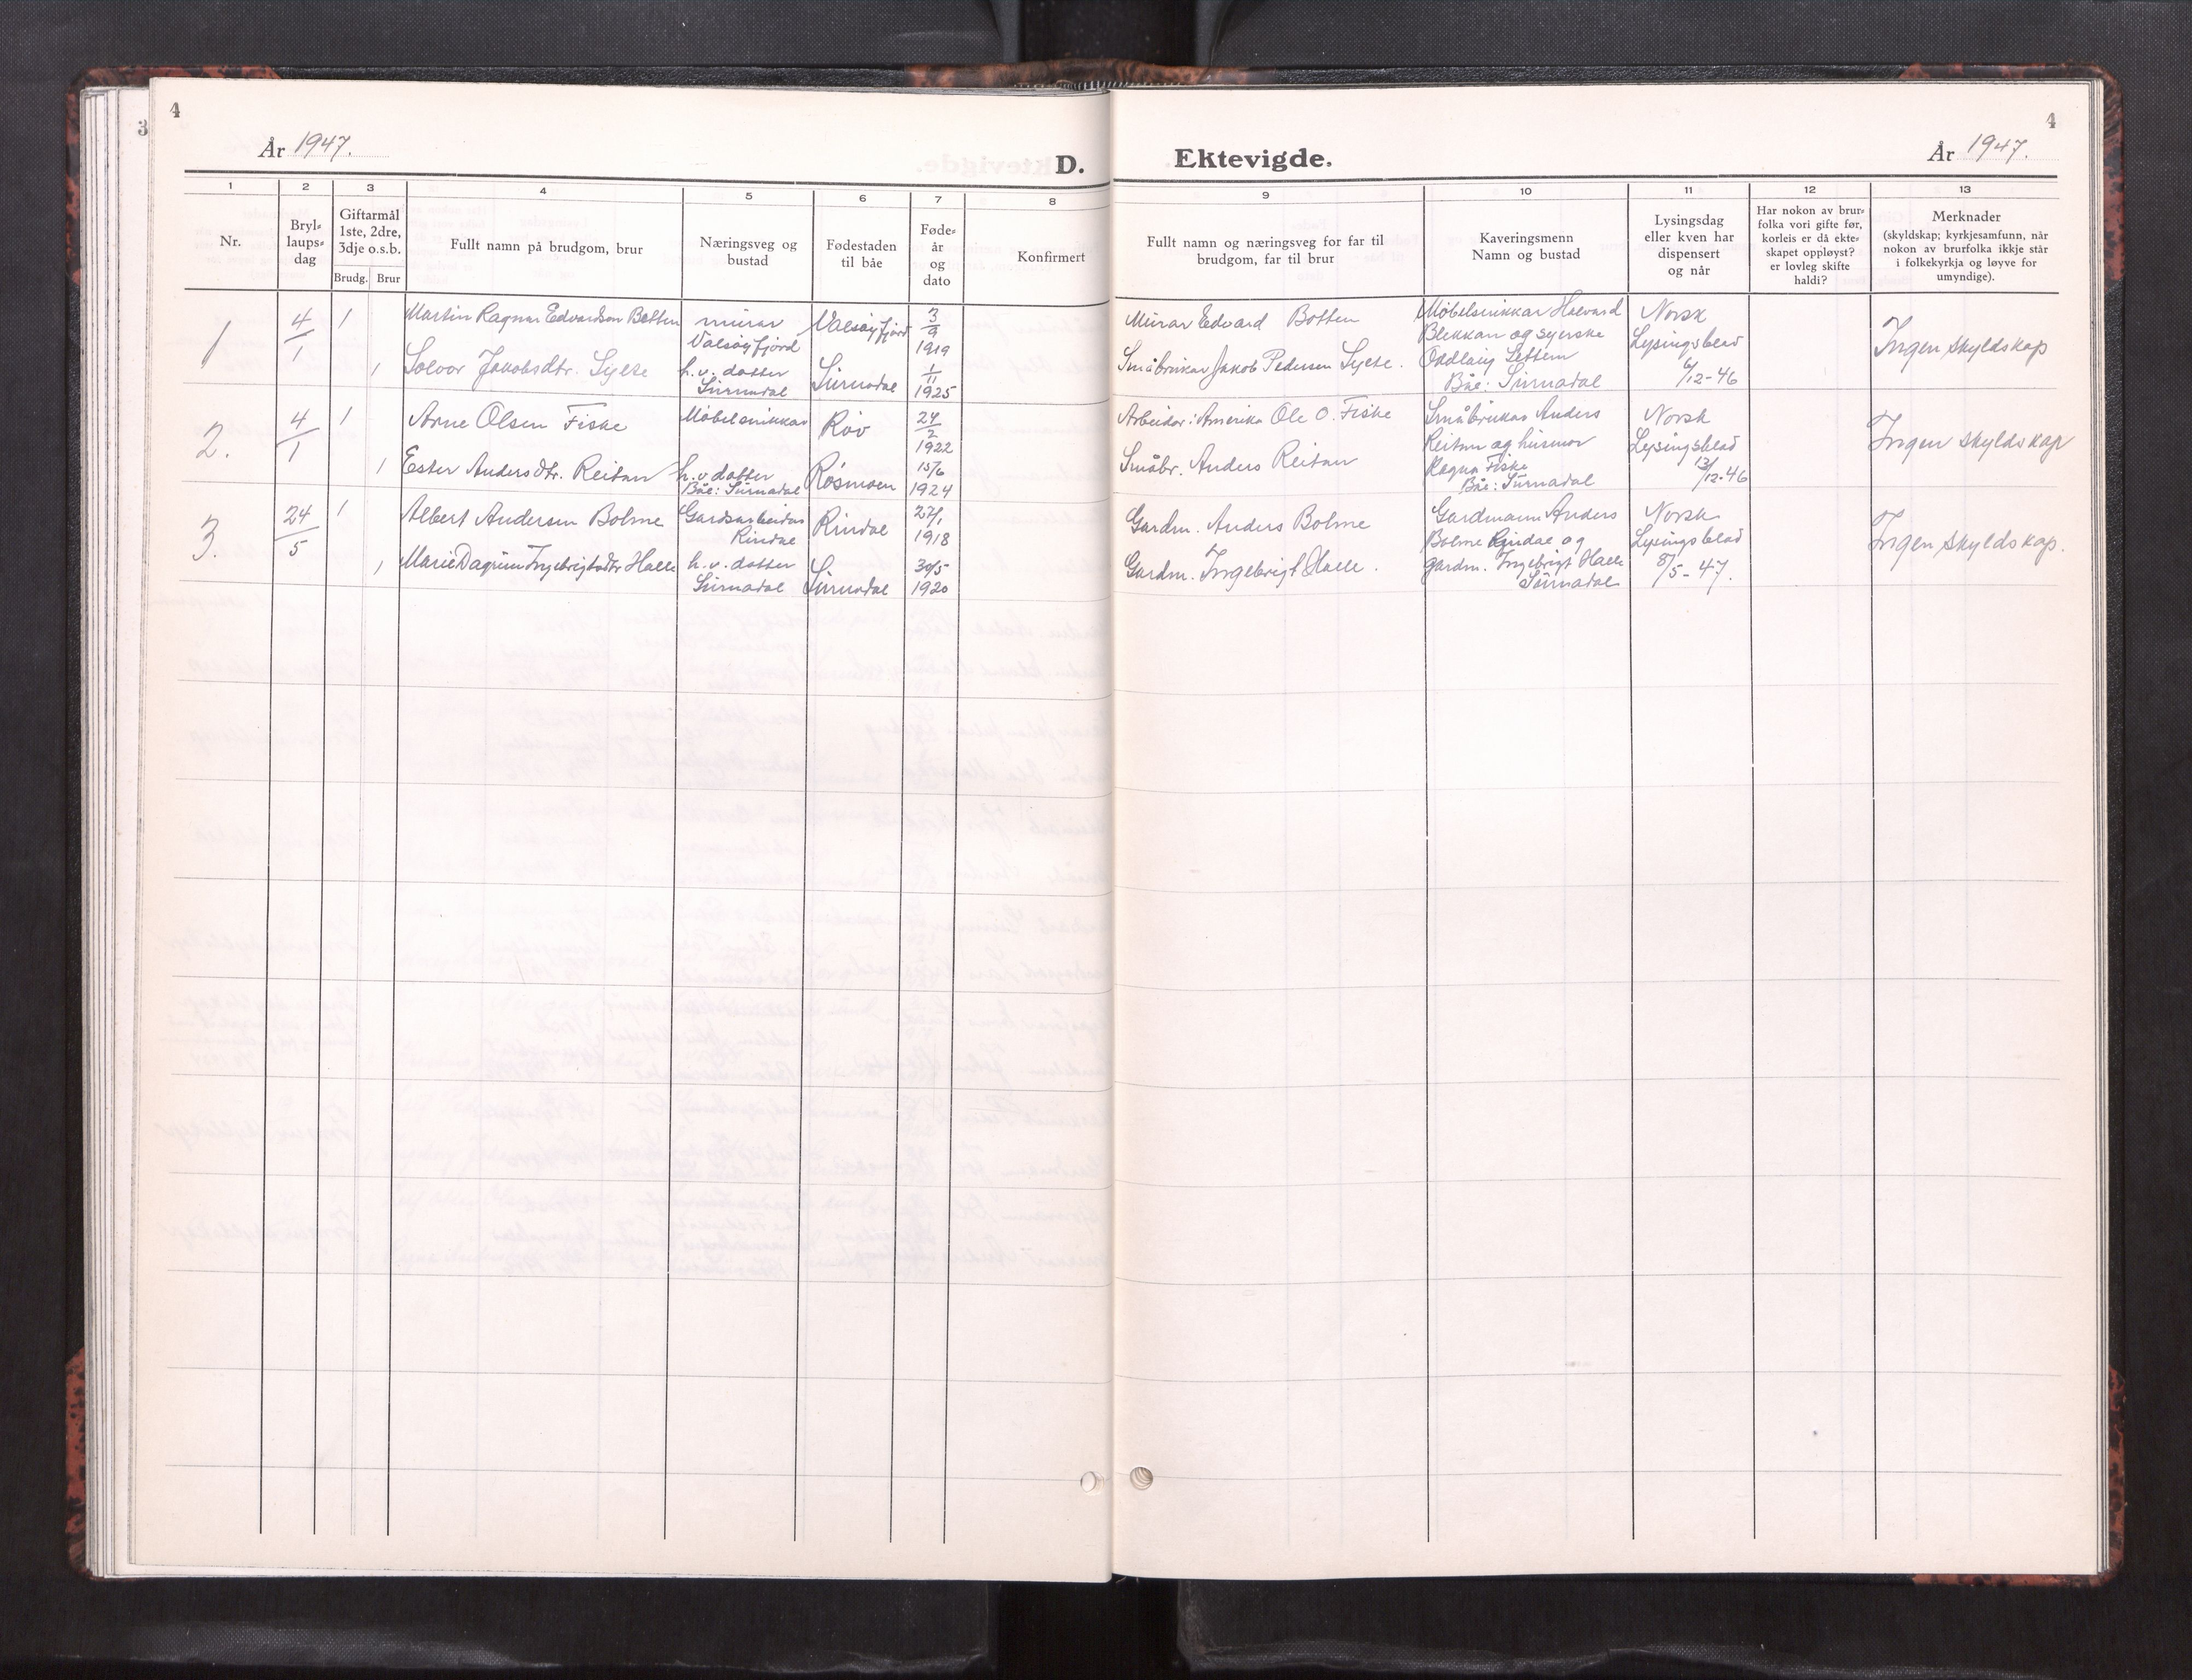 4
3
År 1947.
D.
1 2 3 4 5 6 7 8
Nr.
Bryl-
laups-
dag
Giftarmål
1ste, 2dre,
3dje o.s.b.
Brudg. Brur
Fullt namn på brudgom, brur
Næringsveg og
bustad
Fødestaden
til båe
Føde-
år
og
dato
Konfirmert
1 4/1 1 Martin Ragnar Edvardsen Botten murar Valsøyfjord Valsøyfjord 3/9 1919
1 Solvor Jakobsdtr. Sylte h.v. dotter Surnadal Surnadal 1/11 1925
2. 4/1 1 Arne Olsen Fiske Møbelsnikkar Røv 24/2 1922
1 Ester Andersdtr. Reitan h.v dotter Båe: Surnadal Røsmoen 15/6 1924
3. 24/5 1 Albert Andersen Bolme Gardsarbeidar Rindal Rindal 27/1 1918
1 Marie Dagrun Ingebrigtsdtr Halle h.v. dotter Surnadal Surnadal 30/5 1920
4
Ektevigde.
År 1947.
9 10 11 12 13
Fullt namn og næringsveg for far til
brudgom, far til brur
Kaveringsmenn
Namn og bustad
Lysingsdag
eller kven har
dispensert
og når
Har nokon av brur-
folka vori gifte før,
korleis er då ekte-
skapet oppløyst?
er lovleg skifte
haldi?
Merknader
(skyldskap; kyrkjesamfunn, når
nokon av brurfolka ikkje står
i folkekyrkja og løyve for
umyndige).
Murar Edvard Botten
Småbrukar Jakob Pedersen Sylte.
Møbelsnikkar Halvard
Blekkan og syerske
Oddlaug Settem
Båe: Surnadal
Norsk
Lysingsblad
6/12-46
Ingen skyldskap
Arbeidar i Amerika Ole O. Fiske
Småbr. Anders Reitan
Småbrukar Anders
Reitan og husmor
Ragna Fiske
Båe: Surnadal
Norsk
Lysingsblad
13/12-46
Ingen skyldskap
Gardm. Anders Bolme
Gardm. Ingebrigt Halle.
Gardmann Anders
Bolme Rindal og
gardm. Ingebrigt Halle
Surnadal
Norsk
Lysingsblad
8/5-47.
Ingen skyldskap.